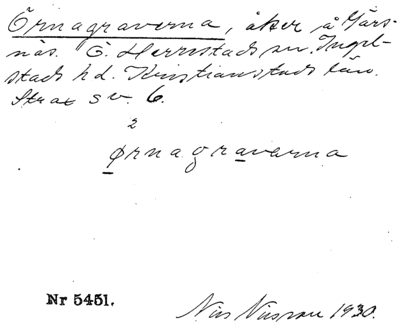 Örnagraverna, åker å Gärs-
näs. Ö. Herrestads sn. Ingel-
stads hd. Kristianstads län.
Strax s v. 6.
2
ørnagravarna
Nr 5451.
Nils Nilsson 1930.